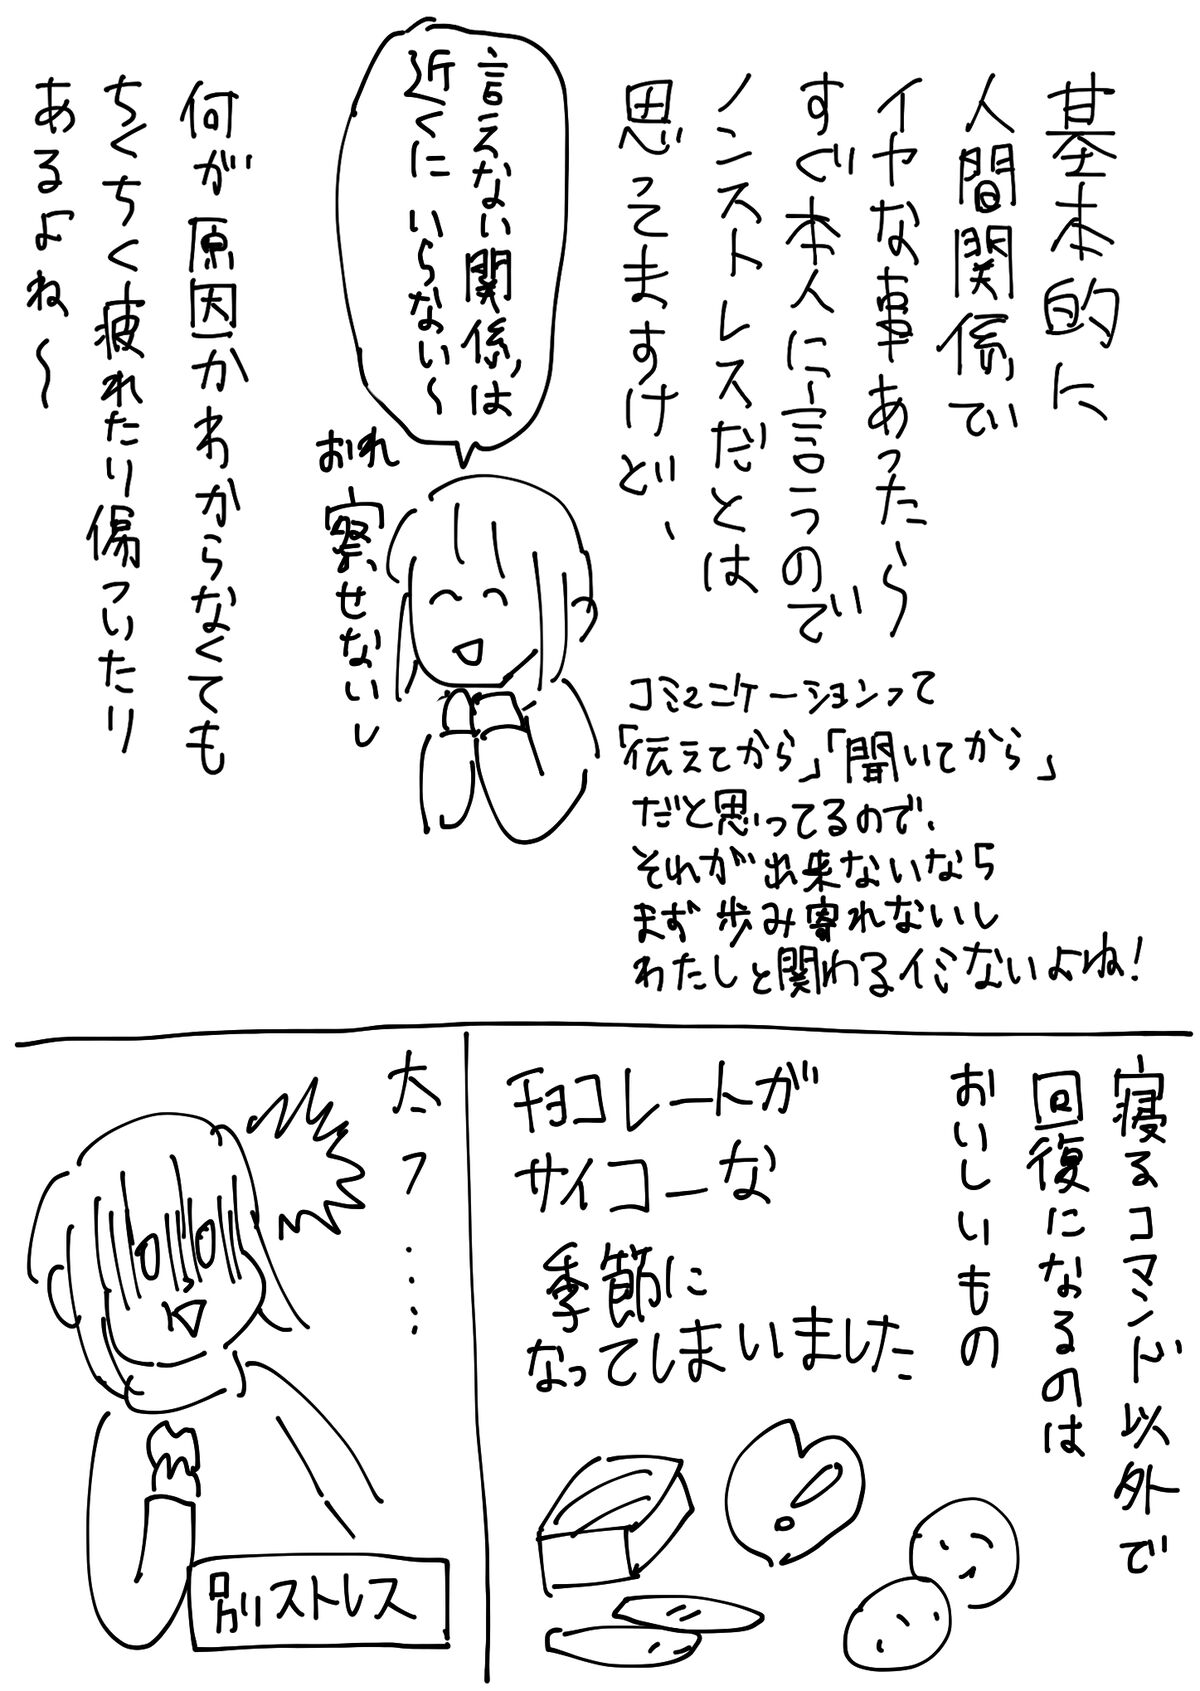 基本的に
人間関係で
イヤな事あったら
すぐ本人に言うので
ノンストレスだとは
思ってますけど、
コミュニケーションって
「伝えてから」「聞いてから」
だと思ってるので、
それが出来ないなら
まず歩み寄れないし
わたしと関わるイミないよね！
言えない関係は
近くにいらない〜
おれ
察せないし
何が原因かわからなくても
ちくちく疲れたり傷ついたり
あるよね〜
寝るコマンド以外で
回復になるのは
おいしいもの
チョコレートが
サイコーな
季節に
なってしまいました
太っ……
別ストレス